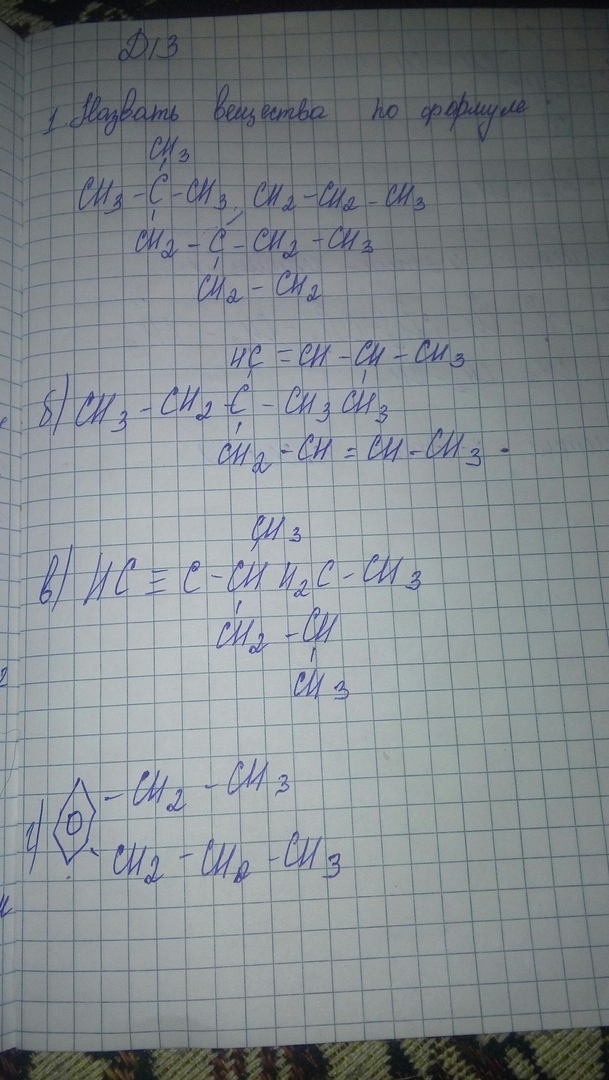 Д/З
1. Назвать вещества по формуле
CH3
CH3 - C - CH3, CH2 - CH2 - CH3
CH2 - C - CH2 - CH3
CH2 - CH2
HC = CH - CH - CH3
б) CH3 - CH2 C - CH3 CH3
CH2 - CH = CH - CH3 .
CH3
в) HC ≡ C - CH H2C - CH3
CH2 - CH
CH3
г) - CH2 - CH3
- CH2 - CH2 - CH3